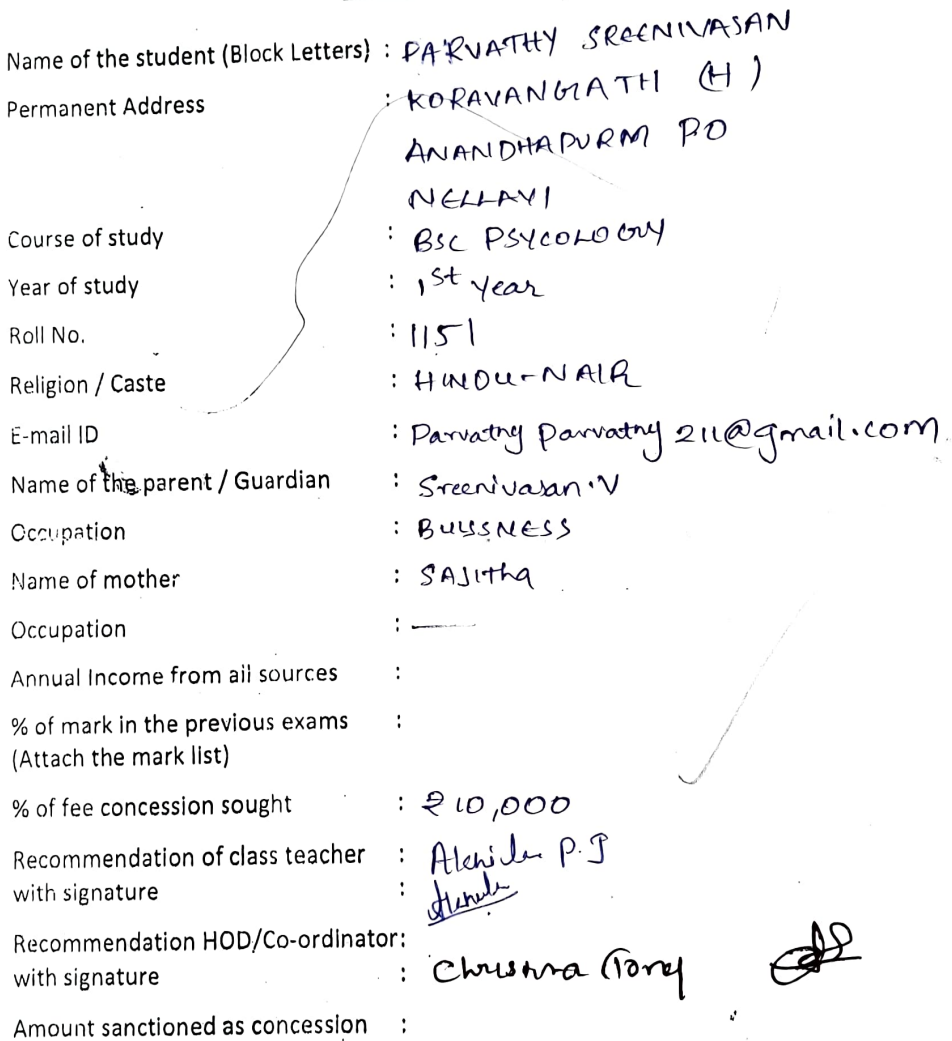 Name of the student (Block Letters) : PARVATHY SREENIVASAN
Permanent Address : KORAVANGATH (H)
ANANDHAPURM PO
NELLAYI
Course of study : BSC PSYCOLOGY
Year of study : 1st year
Roll No. : 1151
Religion / Caste : HINDU-NAIR
E-mail ID : Parvathy parvathy 211@gmail.com
Name of the parent / Guardian : Sreenivasan.V
Occupation : BUISSNESS
Name of mother : SAJItha
Occupation : —
Annual Income from all sources :
% of mark in the previous exams :
(Attach the mark list)
% of fee concession sought : ₹ 10,000
Recommendation of class teacher : P.J
with signature :
Recommendation HOD/Co-ordinator:
with signature :
Amount sanctioned as concession :